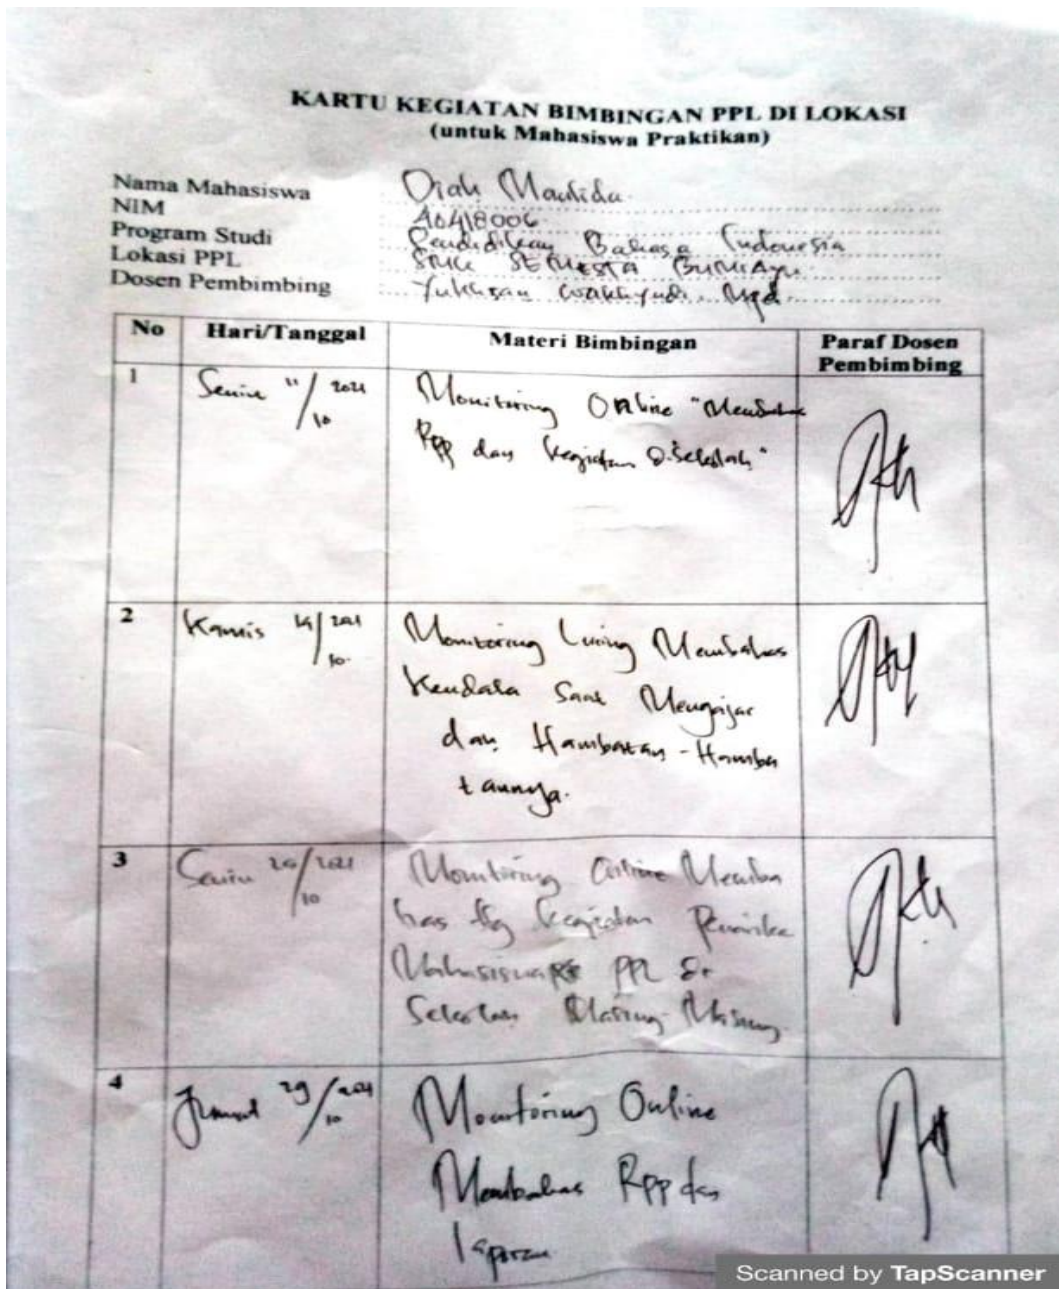 KARTU KEGIATAN BIMBINGAN PPL DI LOKASI
(untuk Mahasiswa Praktikan)
Nama Mahasiswa Diah Maulida
NIM A0418006
Program Studi Pendidikan Bahasa Indonesia
Lokasi PPL SMK SEMESTA BUMIAYU
Dosen Pembimbing Wakhyudi, Mpd
No Hari/Tanggal Materi Bimbingan Paraf Dosen
Pembimbing
1 Senin 11/10 2021 Monitoring Online "Membahas
Rpp dan Kegiatan Di Sekolah"
2 Kamis 14/10 2021 Monitoring Luring Membahas
Kendala Saat Mengajar
dan Hambatan - Hamba
tannya.
3 Senin /10 2021 Monitoring Online Memba
has ttg Kegiatan
Mahasiswa PPL Di
Sekolah Masing-Masing
4 Jumat 29/10 2021 Monitoring Online
Membahas Rpp dan
laporan
Scanned by TapScanner